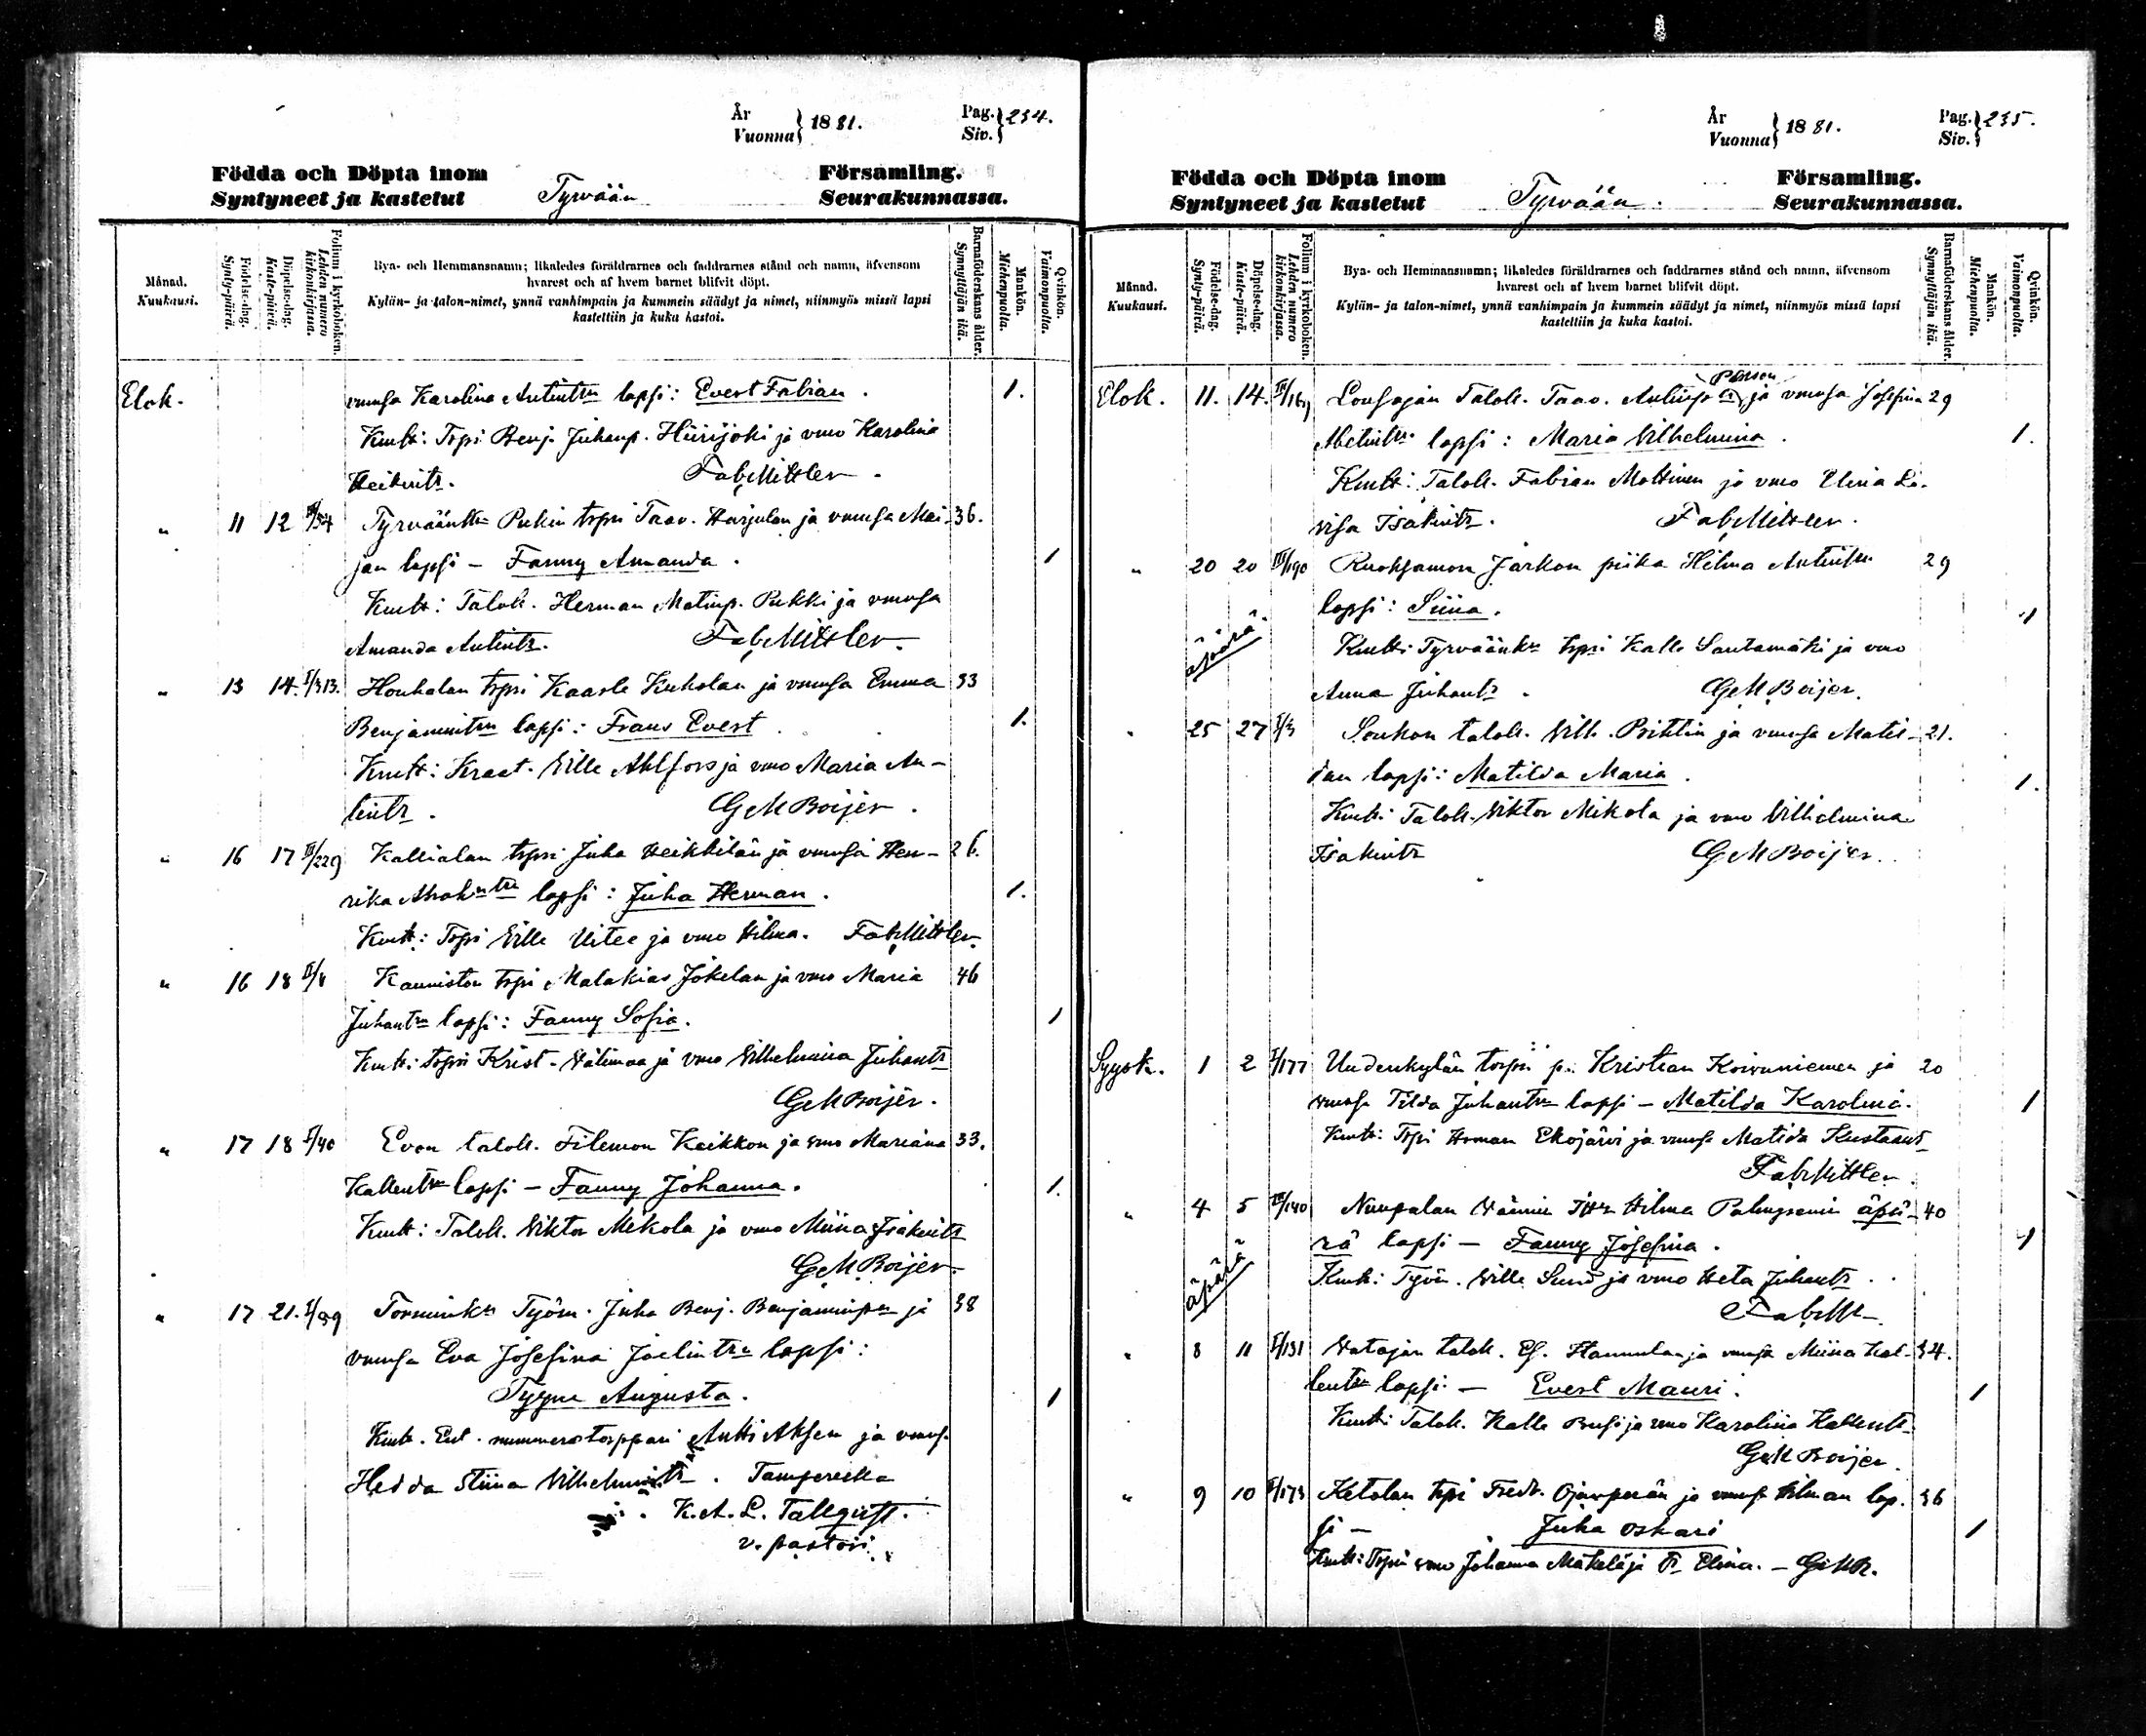 År
Vuonna } 1881.
Pag.
Siv. } 234.
Födda och Döpta inom Församling.
Syntyneet ja kastetut Tyrvään Seurakunnassa.
Månad. Kuukausi.
Födelse-dag. Synty-päivä.
Döpelse-dag. Kaste-päivä.
Folium i kyrkoboken. Lehden numero kirkonkirjassa.
Bya- och Hemmansnamn; likaledes föräldrarnes och faddrarnes stånd och namn, äfvensom
hvarest och af hvem barnet blifvit döpt.
Kylän- ja talon-nimet, ynnä vanhimpain ja kummein säädyt ja nimet, niinmyös missä lapsi
kastettiin ja kuka kastoi.
Barnaföderskans ålder. Synnyttäjän ikä.
Mankön. Miehenpuolta.
Qvinkön. Vaimonpuolta.
Elok. vmonsa Karolina Antintrn lapsi: Evert Fabian. 1.
Kmtt: Trpri Benj. Juhanp. Hiirijoki ja vmo Karolina
Heikintr. Fab. Mittler.
" 11 12 Tyrväänkn Pukin trpri Taav. Harjulan ja vmonsa Mai- 36.
jan lapsi - Fanny Amanda. 1
Kmtt: Talok. Herman Matinp. Pukki ja vmonsa
Amanda Antintr. Fab. Mittler.
" 13 14. I/313. Houhalan trpri Kaarle Kuholan ja vmonsa Emma 33
Benjamintrn lapsi: Frans Evert. 1.
Kmtt: Kraat. Ville Ahlfors ja vmo Maria An-
tintr. G.M. Boijer.
" 16 17 II/229 Kallialan trpri Juha Heikkilän ja vmonsa Hen- 26.
rika Abrah.trn lapsi: Juha Herman. 1.
Kmtt: Trpri Ville Uitee ja vmo Hilma. Fab. Mittler.
" 16 18 II/8 Kanniston trpri Malakias Jokelan ja vmo Maria 46
Juhantrn lapsi: Fanny Sofia. 1
Kmtt: trpri Krist. Välimaa ja vmo Vilhelmina Juhantr
G.M. Boijer.
" 17 18 I/40 Evon talok. Filemon Keikkon ja vmo Mariana 33.
Kallentrn lapsi - Fanny Johanna. 1.
Kmtt: Talok. Viktor Mikola ja vmo Miina Isakintr
G.M. Boijer.
" 17 21. Torminkn Työm. Juha Benj. Benjaminpn ja 38
vmonsa Eva Josefina Joelintrn lapsi:
Tyyne Augusta. 1
Kmtt. Ent. nummerotorppari Antti Aksen ja vmons.
Hedda Stiina Vilhelmintr. Tampereella
K.A.L. Tallqvist.
v. pastori.
År
Vuonna } 1881.
Pag.
Siv. } 235.
Födda och Döpta inom Församling.
Syntyneet ja kastetut Tyrvään. Seurakunnassa.
Månad. Kuukausi.
Födelse-dag. Synty-päivä.
Döpelse-dag. Kaste-päivä.
Folium i kyrkoboken. Lehden numero kirkonkirjassa.
Bya- och Hemmansnamn; likaledes föräldrarnes och faddrarnes stånd och namn, äfvensom
hvarest och af hvem barnet blifvit döpt.
Kylän- ja talon-nimet, ynnä vanhimpain ja kummein säädyt ja nimet, niinmyös missä lapsi
kastettiin ja kuka kastoi.
Barnaföderskans ålder. Synnyttäjän ikä.
Mankön. Miehenpuolta.
Qvinkön. Vaimonpuolta.
Elok. 11. 14. Talok. Taav. Antinp ja vmonsa Josefina 29
lapsi: Maria Vilhelmina. 1.
Kmtt: Talok. Fabian Mattinen ja vmo Elina Lo-
visa Isakintr. Fab. Mittler.
" 20 20 III/190 Ruoksamon Jarkon piika Hilma Antintrn 29
lapsi: Siina. 1
äpärä
Kmtt: Tyrväänkn trpri Kalle Santamäki ja vmo
Anna Juhantr. G.M. Boijer.
" 25 27 I/3 Soukon talok. Vilh. Prihtin ja vmonsa Matil- 21.
dan lapsi: Matilda Maria. 1.
Kmtt: Talok. Viktor Mikola ja vmo Vilhelmina
Isakintr G.M. Boijer.
Syysk. 1 2 I/177 Uudenkylän torpn p. Kristian Koivuniemen ja 20
vmonsa Tilda Juhantrn lapsi - Matilda Karolina. 1
Kmtt: Trpri Herman Ekojärvi ja vmonsa Matilda Kustaantr
Fab. Mittler.
" 4 5 III/140 Nuupalan Vännin Hilma Palmgrenin äpä- 40
rä lapsi - Fanny Josefina. 1
äpärä
Kmtt: Työm. Ville Sund ja vmo Heta Juhantr.
Fab. M.
" 8 11 I/131 Vatajan talok. Ef. Hannulan ja vmonsa Miina Kal- 34.
lentrn lapsi - Evert Mauri. 1
Kmtt: Talok. Kalle Prusi ja vmo Karolina Kallentr.
G.M. Boijer.
" 9 10 II/173 Ketolan trpri Fredr. Ojanperän ja vmonsa Hilman lap- 36
si - Juha Oskari 1
Kmtt: Trprin vmo Johanna Mäkelä ja Tr Elina. - G.M.B.